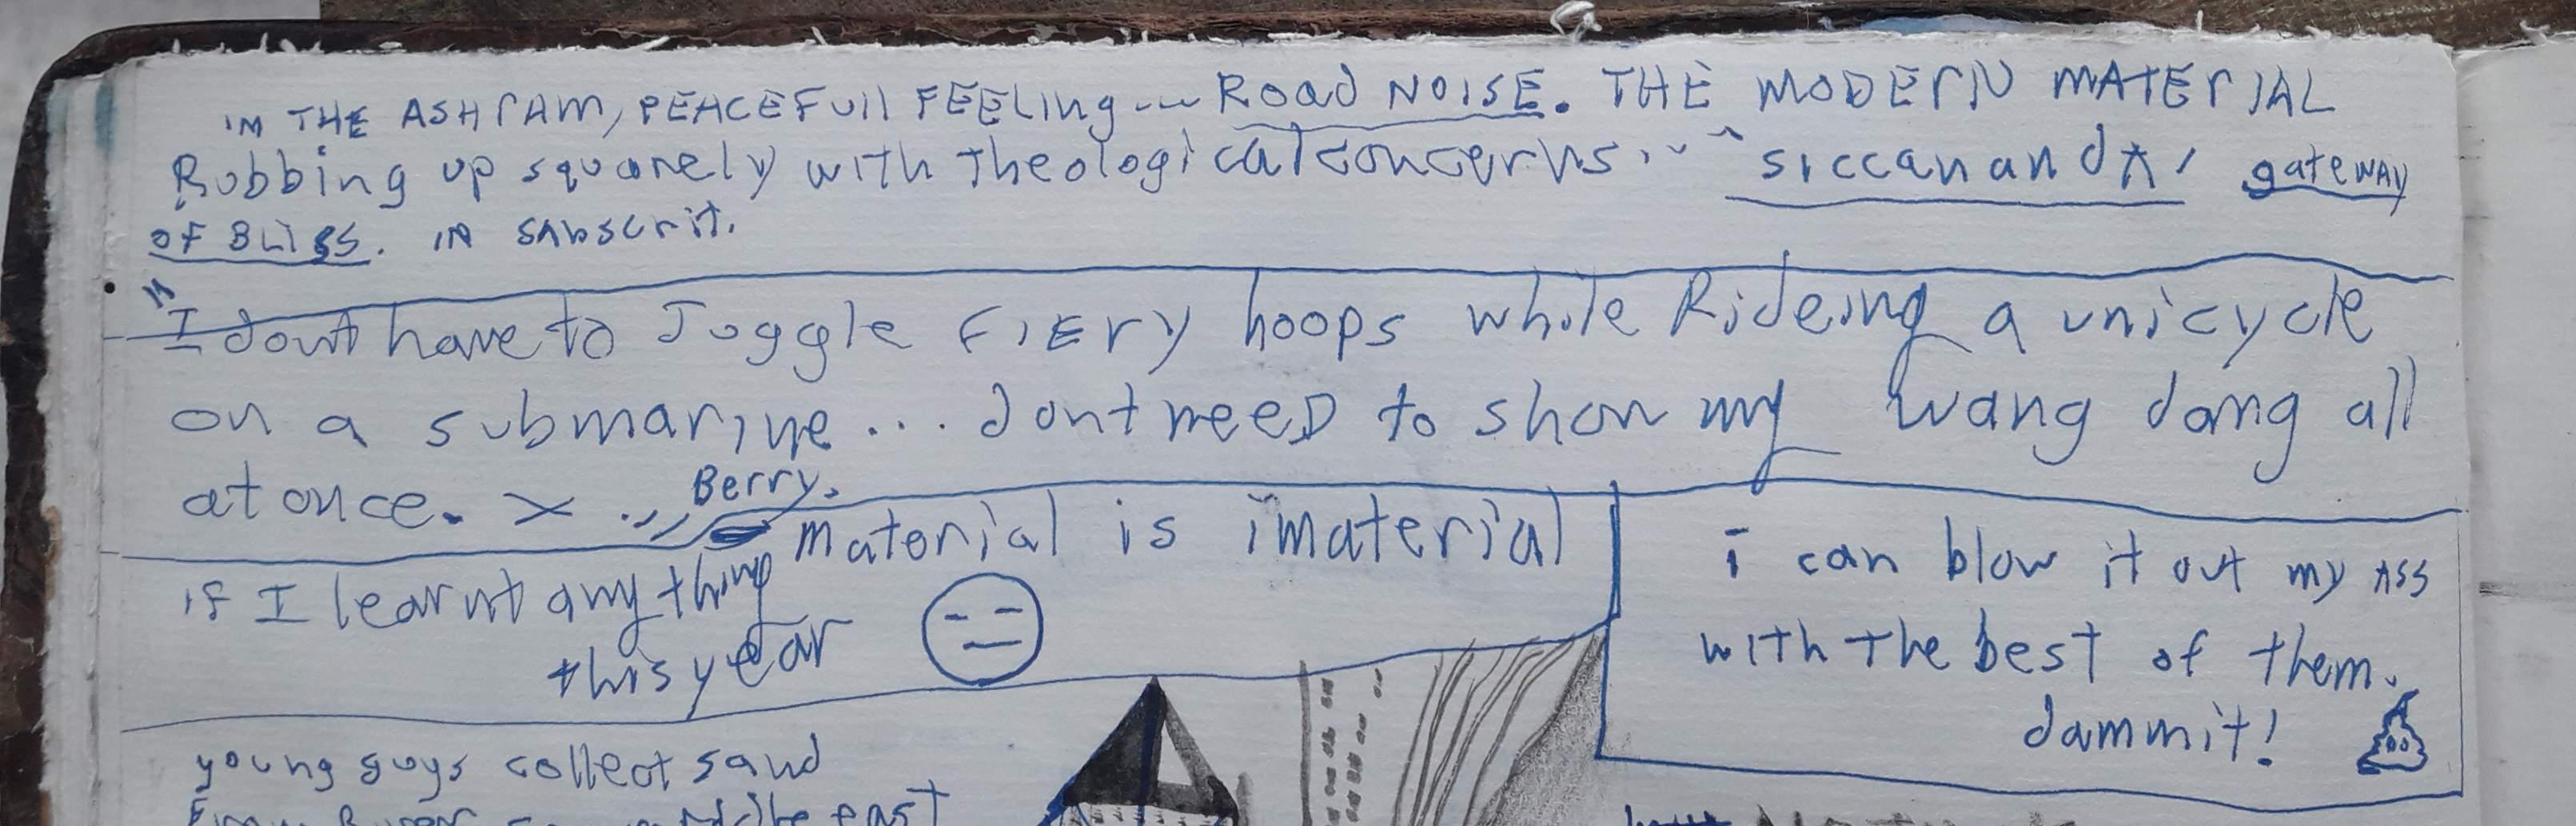 IN THE ASHrAM, PEACEFUll FEELing... Road NOISE. THE MODErN MATErIAL
Rubbing up squarely with theological concerns... "siccanandA, gateWAY
OF BLiSS. IN sAnscrit.
"I dont have to Juggle FIEry hoops while Rideing a unicycle
on a submarine... dont neeD to show my wang dang all
at once. X ... Berry.
material is imaterial
if I learnt anything
this year
i can blow it out my ASS
with the best of them.
dammit!
young guys collect sand
east